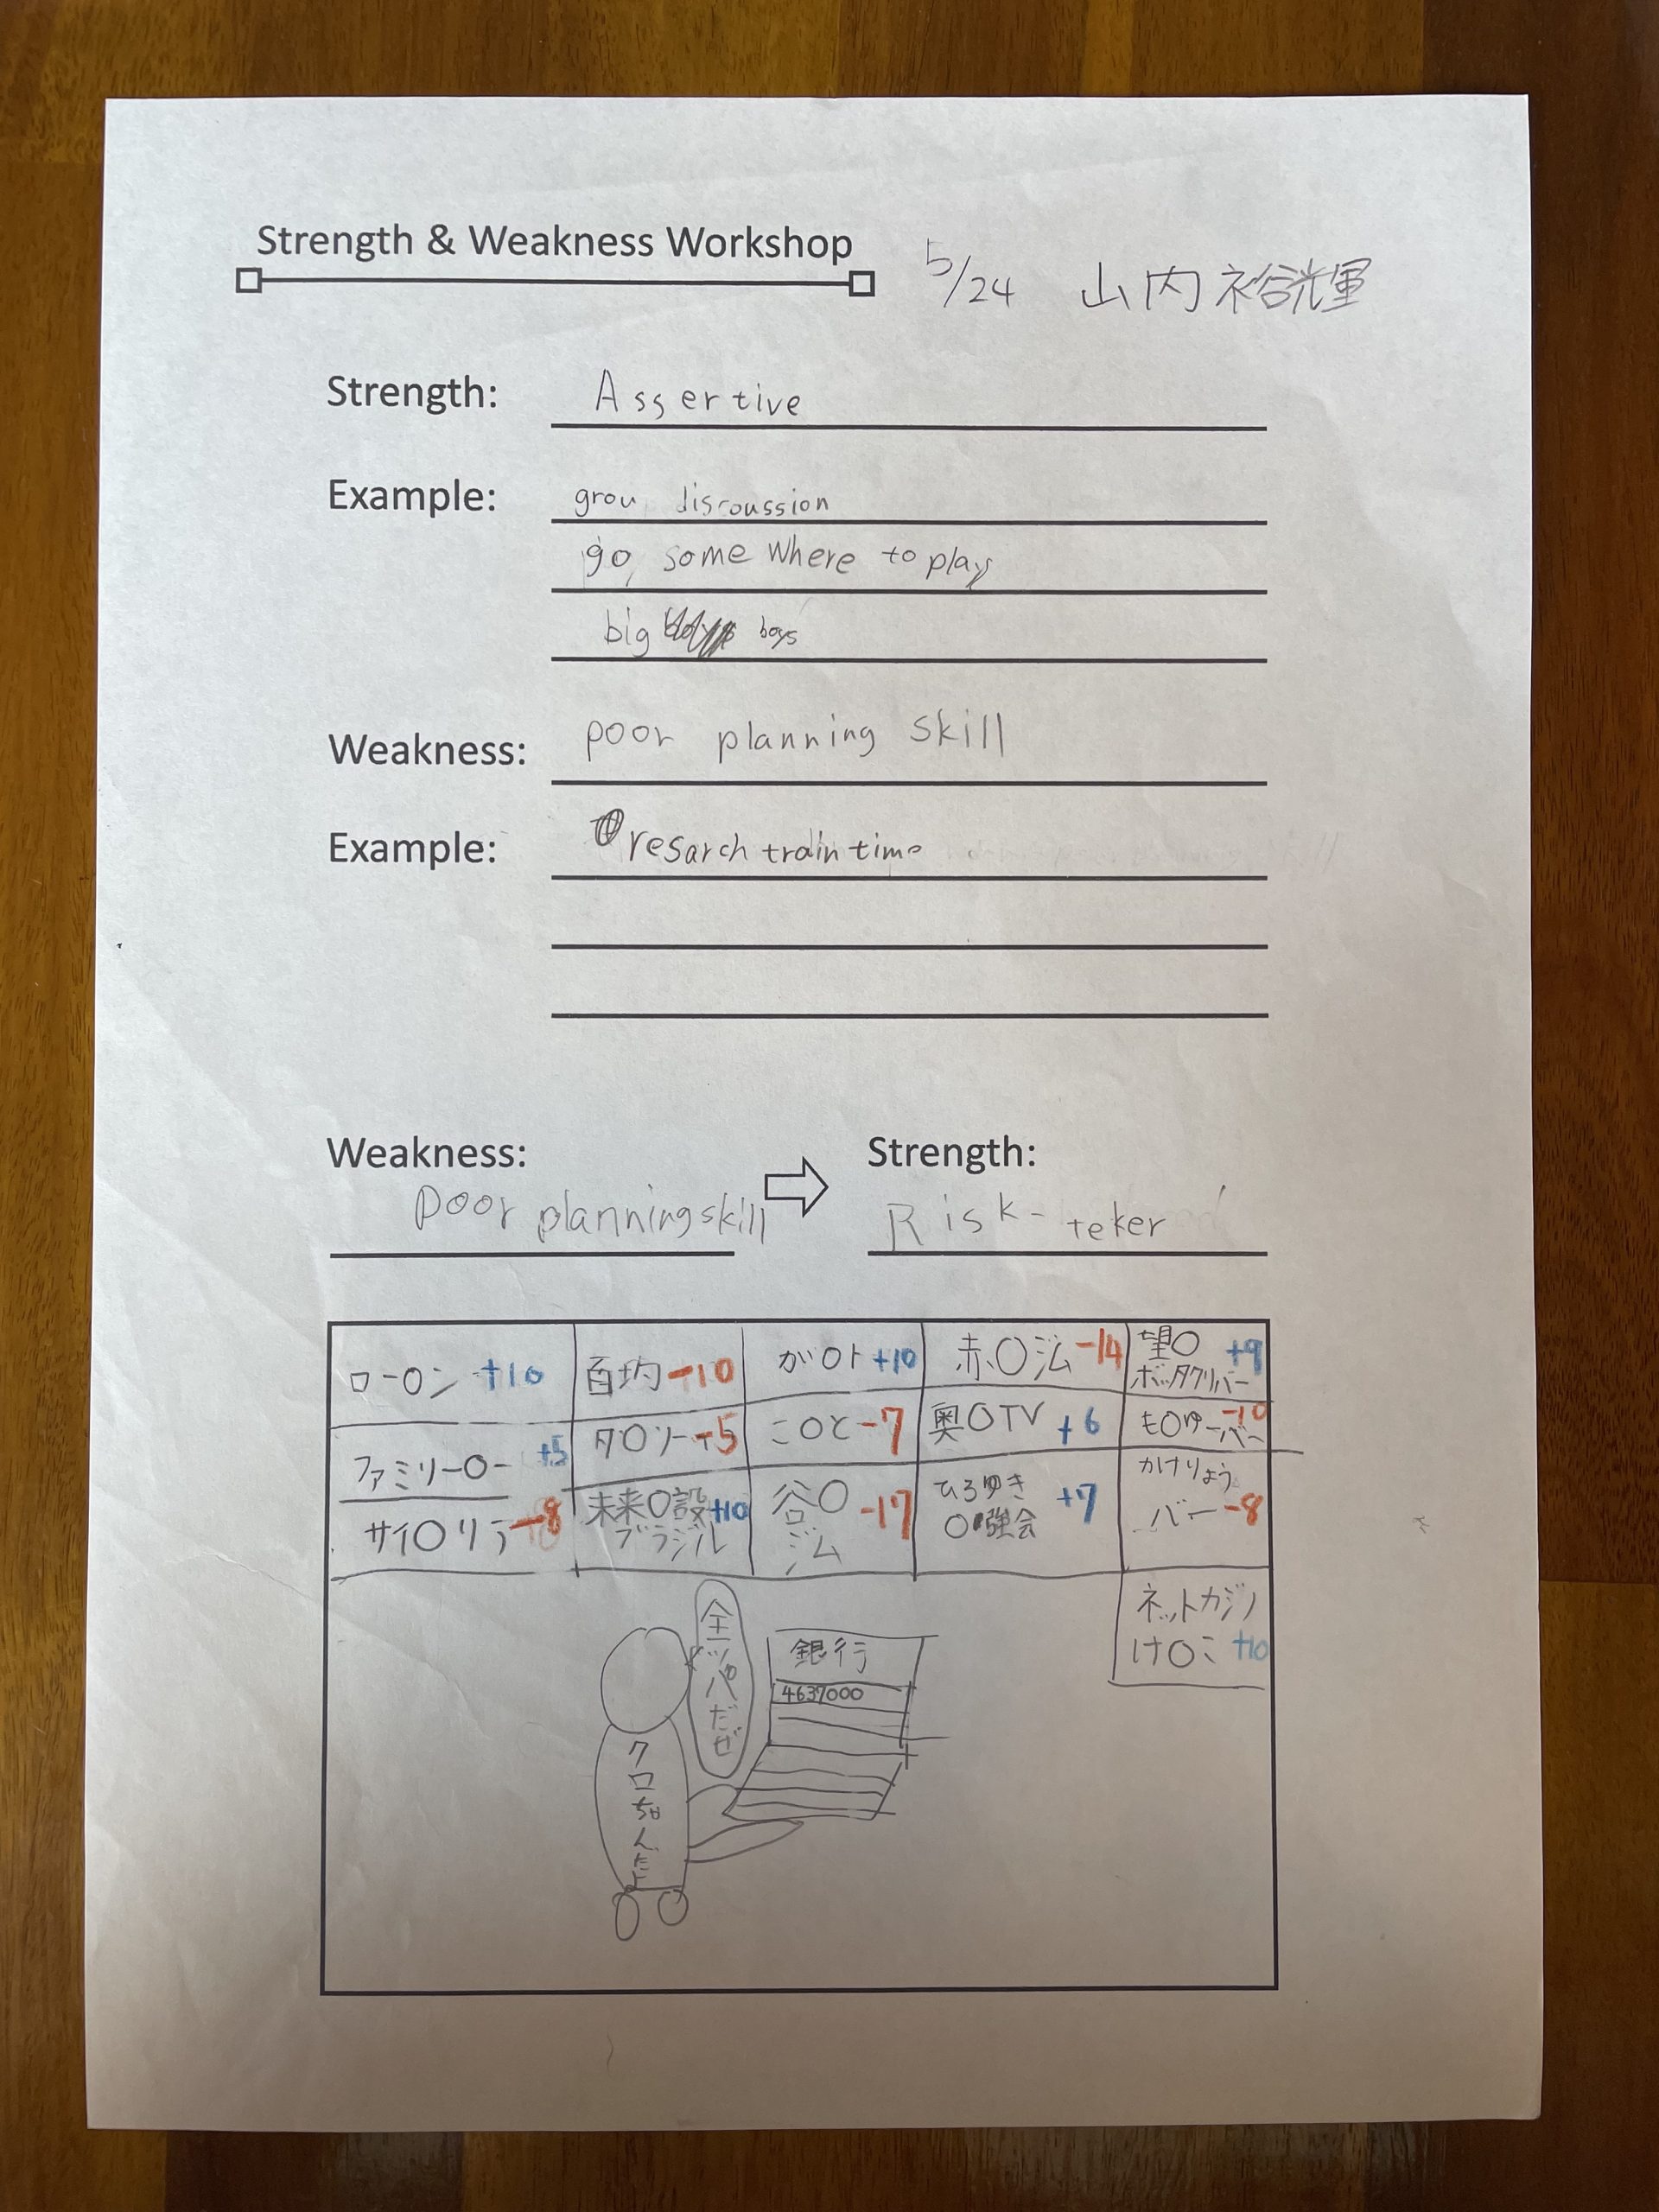 Strength & Weakness Workshop
5/24 山内 裕輝
Strength: Assertive
Example: grou discoussion
go some where to play
big boys
Weakness: poor planning skill
Example: resarch train time
Weakness:
Strength:
poor planning skill
Risk-teker
ロー〇ン +10
百均 -10
が〇ト +10
赤〇 -14
望〇 +9
ボッタクリバー
ファミリー〇ー +5
タ〇ソー -5
こ〇と -7
奥〇TV +6
も〇りーバー -10
サイ〇リヤ -8
未来〇設 +10
ブラジル
谷〇 -17
ジム
ひろゆき +7
〇強会
かけりょう
バー -8
ネットカジノ
け〇こ +10
全ツッパだぜ
銀行
4637000
クロちゃんだよ